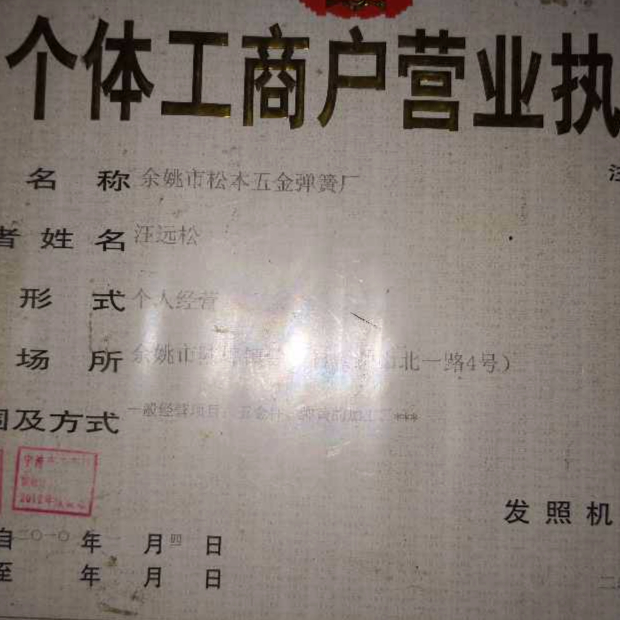 个体工商户营业执
名 称 余姚市松本五金弹簧厂
者 姓 名 汪远松
形 式 个人经营
场 所 余姚市 北一路4号）
围及方式 一般经营项目：五金件、 加工。***
2012年
发 照 机
自 二〇一〇 年 月 四 日
至 年 月 日